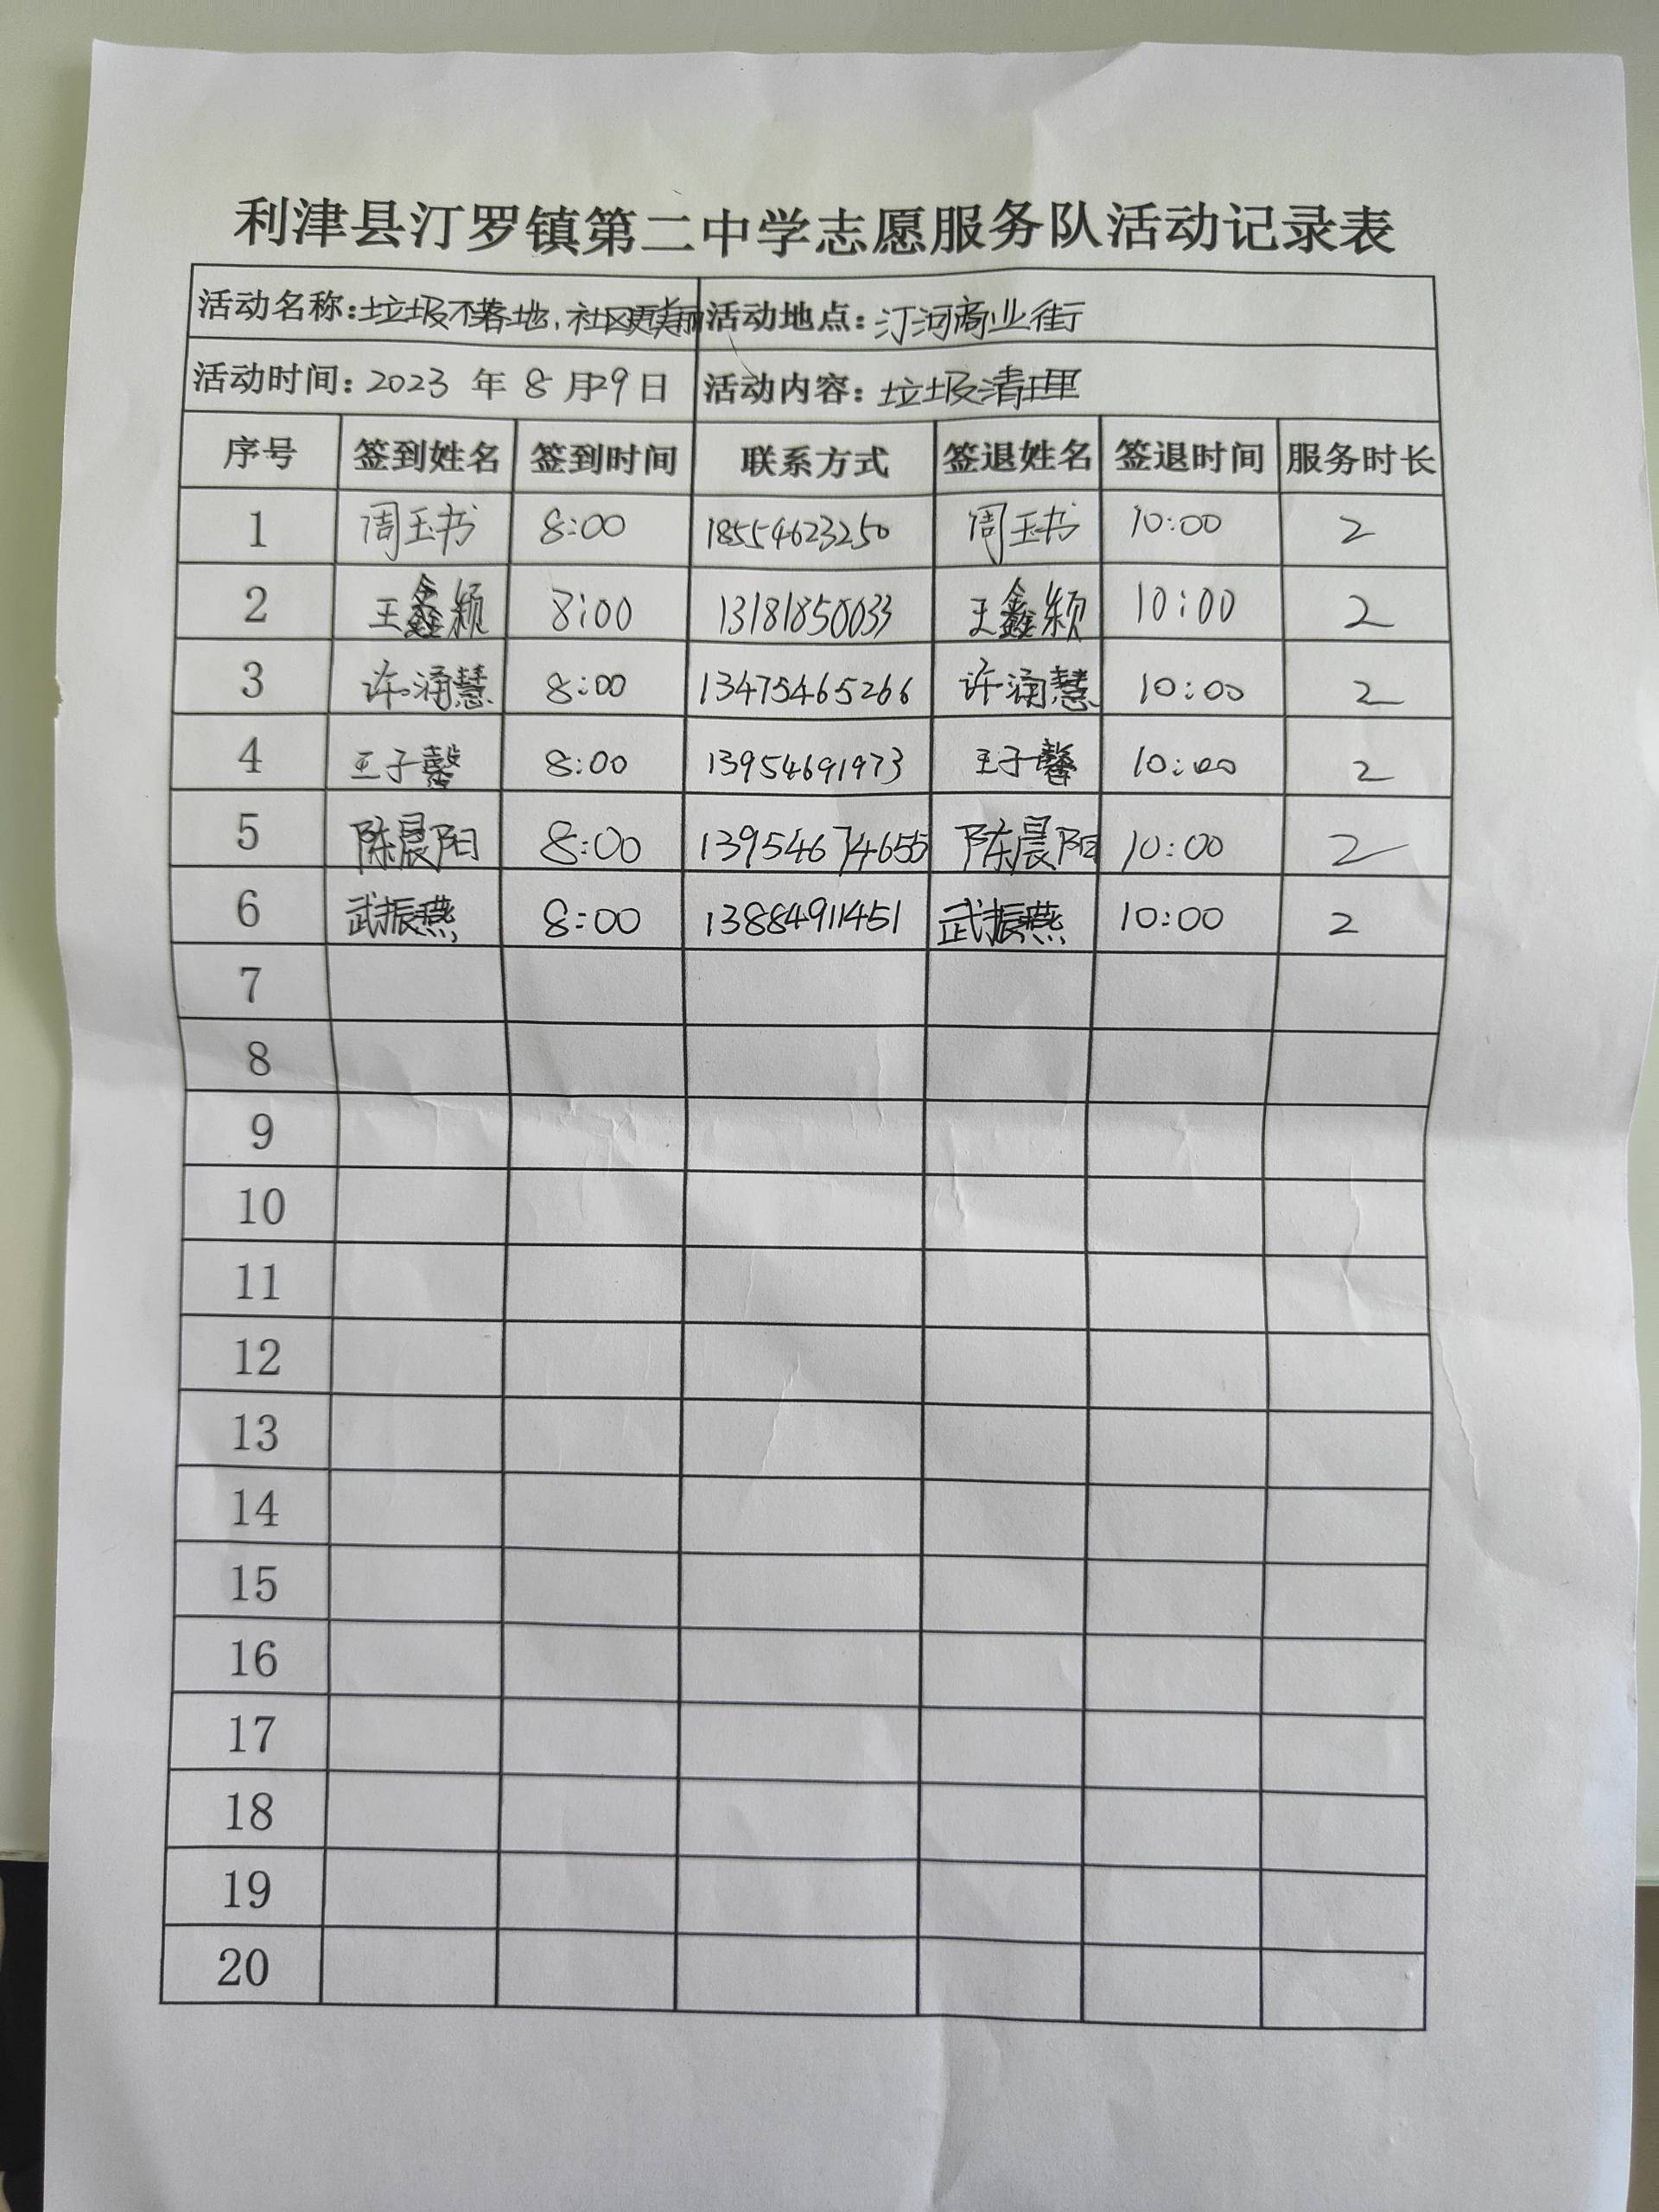 利津县汀罗镇第二中学志愿服务队活动记录表
活动名称:垃圾不落地,社区更美丽 活动地点:汀河商业街
活动时间:2023 年 8 月29日 活动内容:垃圾清理
序号 签到姓名 签到时间 联系方式 签退姓名 签退时间 服务时长
1 周玉书 8:00 18554623250 周玉书 10:00 2
2 王鑫颖 8:00 13181850033 王鑫颖 10:00 2
3 许涌慧 8:00 13475465266 许涌慧 10:00 2
4 王子馨 8:00 13954691973 王子馨 10:00 2
5 陈晨阳 8:00 13954674655 陈晨阳 10:00 2
6 武振燕 8:00 13884911451 武振燕 10:00 2
7
8
9
10
11
12
13
14
15
16
17
18
19
20